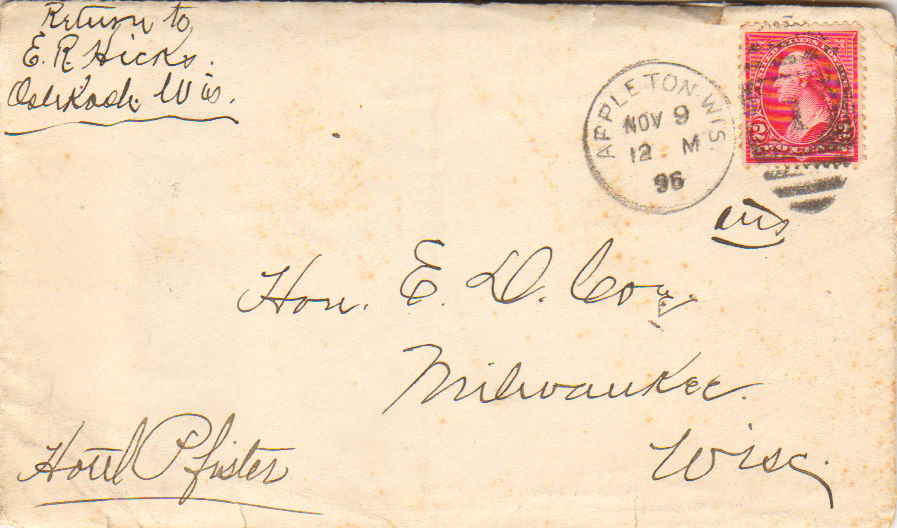 Return to
E. R. Hicks.
Oshkosh. Wis.
APPLETON WIS
NOV 9
12 M
96
2 2
ans
Hon. E. D. Coe
Milwaukee.
Wisc.
Hotel Pfister